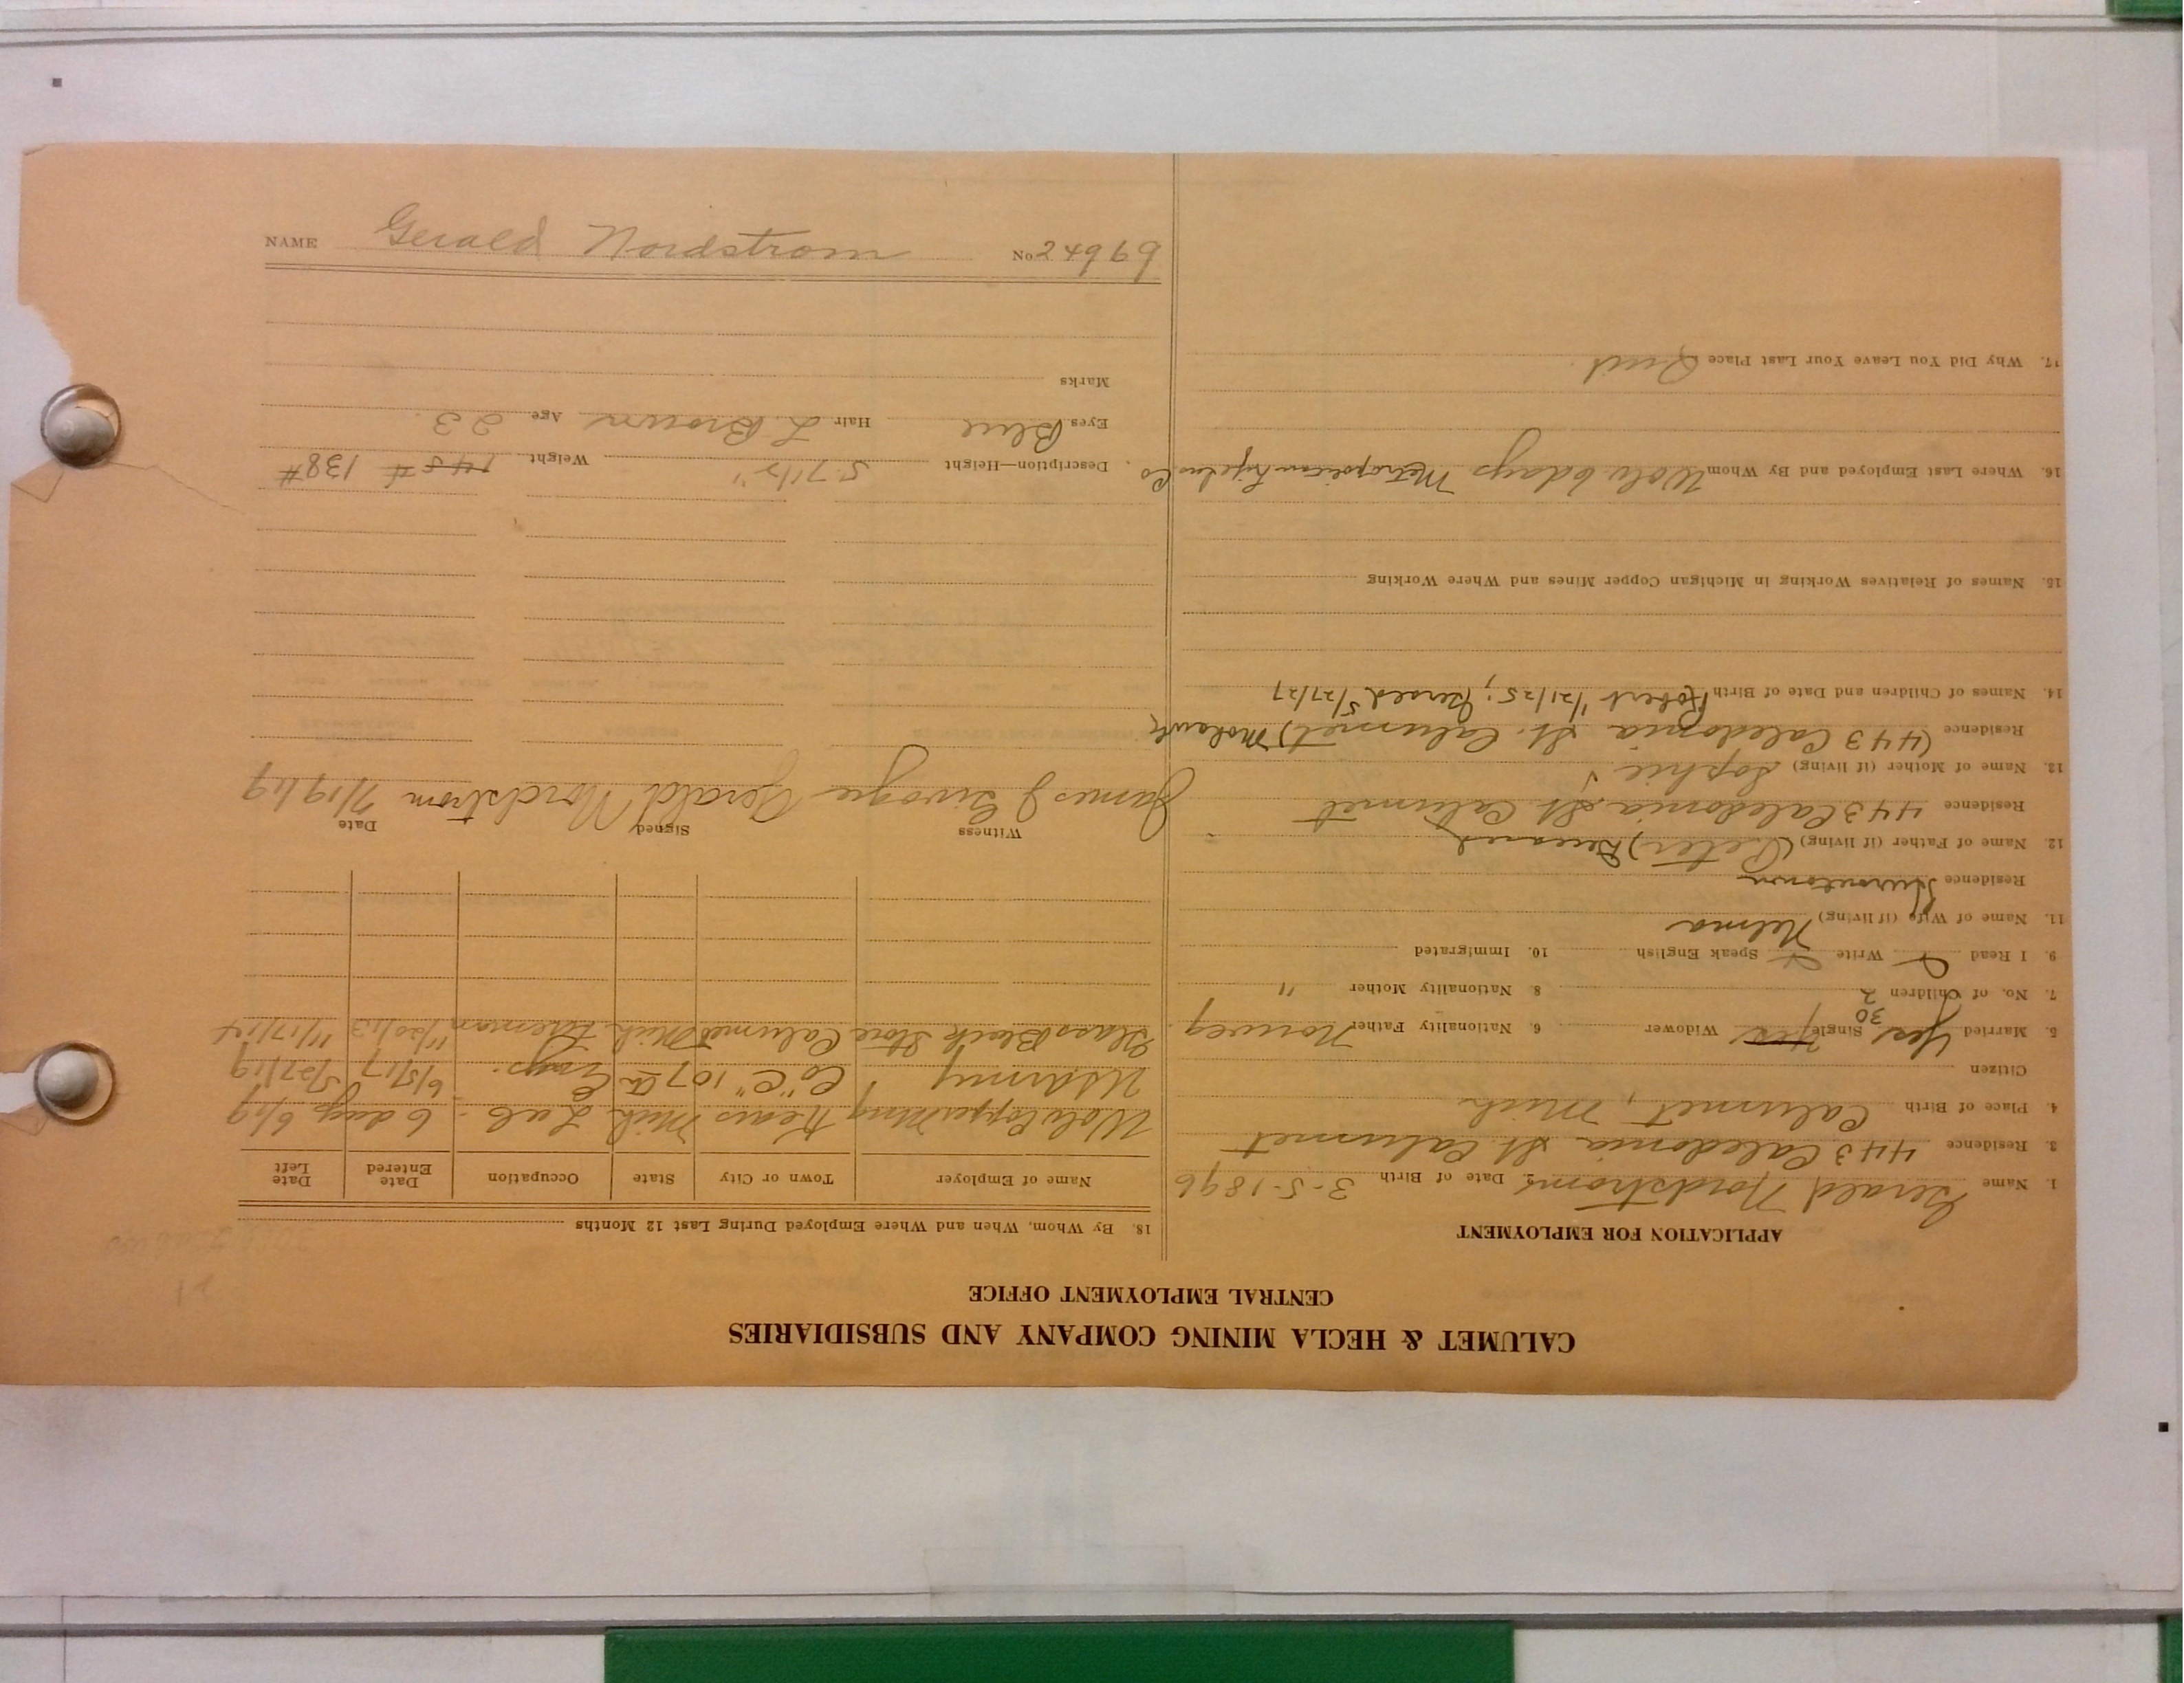 CALUMET & HECLA MINING COMPANY AND SUBSIDIARIES
CENTRAL EMPLOYMENT OFFICE
APPLICATION FOR EMPLOYMENT
1. Name Gerald Nordstrom Date of Birth 3-5-1896
3. Residence 443 Caledonia St Calumet
4. Place of Birth Calumet, Mich
Citizen
5. Married Yes 30 Single Yes Widower 6. Nationality Father Norweg
7. No. of Children 2 8. Nationality Mother "
9. I Read Write Speak English 10. Immigrated
11. Name of Wife (if living) Helma
Residence Hurontown
12. Name of Father (if living) (Peter) Deceased
Residence 443 Caledonia St Calumet
13. Name of Mother (if living) Sophie
Residence (443 Caledonia St. Calumet) Mohawk
14. Names of Children and Date of Birth Robert 1/21/25; Gerald 5/27/27
15. Names of Relatives Working in Michigan Copper Mines and Where Working
16. Where Last Employed and By Whom Wolv 6 days Metropolitan Life Ins Co
17. Why Did You Leave Your Last Place Quit
18. By Whom, When and Where Employed During Last 12 Months
Name of Employer Town or City State Occupation Date Entered Date Left
Wolv Copper Mng Kears Mich Mich Lab - 6 days 6/19
US Army Co "C" 107th Engs. 6/5/17 5/27/19
Glass Block Store Calumet Mich 11/20/13 11/17/14
Witness Signed Date
James J Gerald Nordstrom 7/19/19
Description—Height 5.7 1/2" Weight 145# 138#
Eyes Blue Hair L. Brown Age 23
Marks
NAME Gerald Nordstrom No 24969